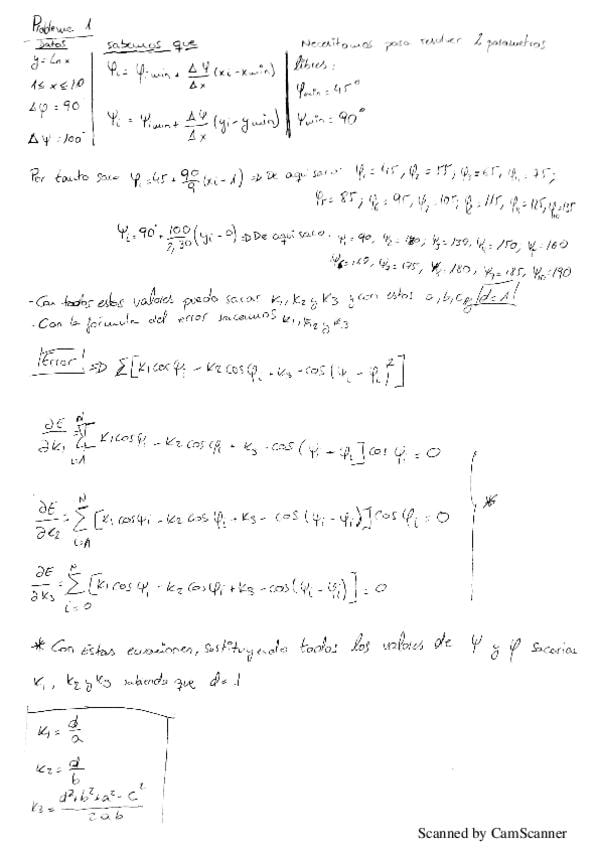 Problema 1
Datos
y = Ln x
1 ≤ x ≤ 10
Δφ = 90
Δψ = 100°
sabemos que
φi = φi min + Δφ/Δx (xi - x min)
ψi = ψi min + Δψ/Δx (yi - y min)
Necesitamos para resolver 2 parametros
libres:
φmin = 45°
ψmin = 90°
Por tanto saco φi = 45 + 90/9 (xi - 1) ⇒ De aqui saco: φ1 = 45, φ2 = 55, φ3 = 65, φ4 = 75;
φ5 = 85; φ6 = 95, φ7 = 105; φ8 = 115, φ9 = 125, φ10 = 135
ψi = 90° + 100/2,30 (yi - 0) ⇒ De aqui saco: ψ1 = 90, ψ4 = 150, ψ5 = 160
ψ7 = 175, ψ8 = 180, ψ9 = 185, ψ10 = 190
- Con todos estos valores puedo sacar K1, K2 y K3 y con estos a, b, c y d = 1!
- Con la fórmula del error sacamos K1, K2 y K3
¡Error! ⇒ Σ [K1 cos φi - K2 cos φi + K3 - cos (ψi - φi)²]
∂E/∂K1 = Σ K1 cos φi - K2 cos φi + K3 - cos (ψi + φi] cos ψi = 0
∂E/∂K2 = Σ [K1 cos ψi - K2 cos φi + K3 - cos (ψi - φi)] cos φi = 0
*
∂E/∂K3 = Σ i=0 [K1 cos ψi - K2 cos φi + K3 - cos (ψi - φi)] = 0
* Con estas ecuaciones, sustituyendo todos los valores de ψ y φ sacarias
K1, K2 y K3 sabiendo que d = 1
K1 = d/a
K2 = d/b
K3 = d² + b² + a² - c² / 2ab
Scanned by CamScanner